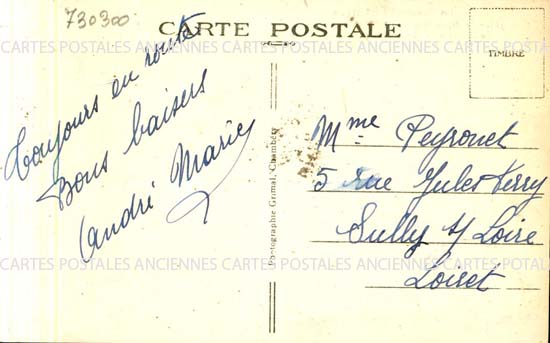 730300
CARTE POSTALE
TIMBRE
Toujours en route
Bons baisers
André Marie
Photographie Grimal, Chambéry
Mme Peyronet
5 rue Jules Ferry
Sully s/ Loire
Loiret
CARTES POSTALES ANCIENNES CARTES POSTALES ANCIENNES CARTES POSTALES ANCIENNES CARTES POSTAL
CARTES POSTALES ANCIENNES CARTES POSTALES ANCIENNES CARTES POSTALES ANCIENNES CARTES POSTAL